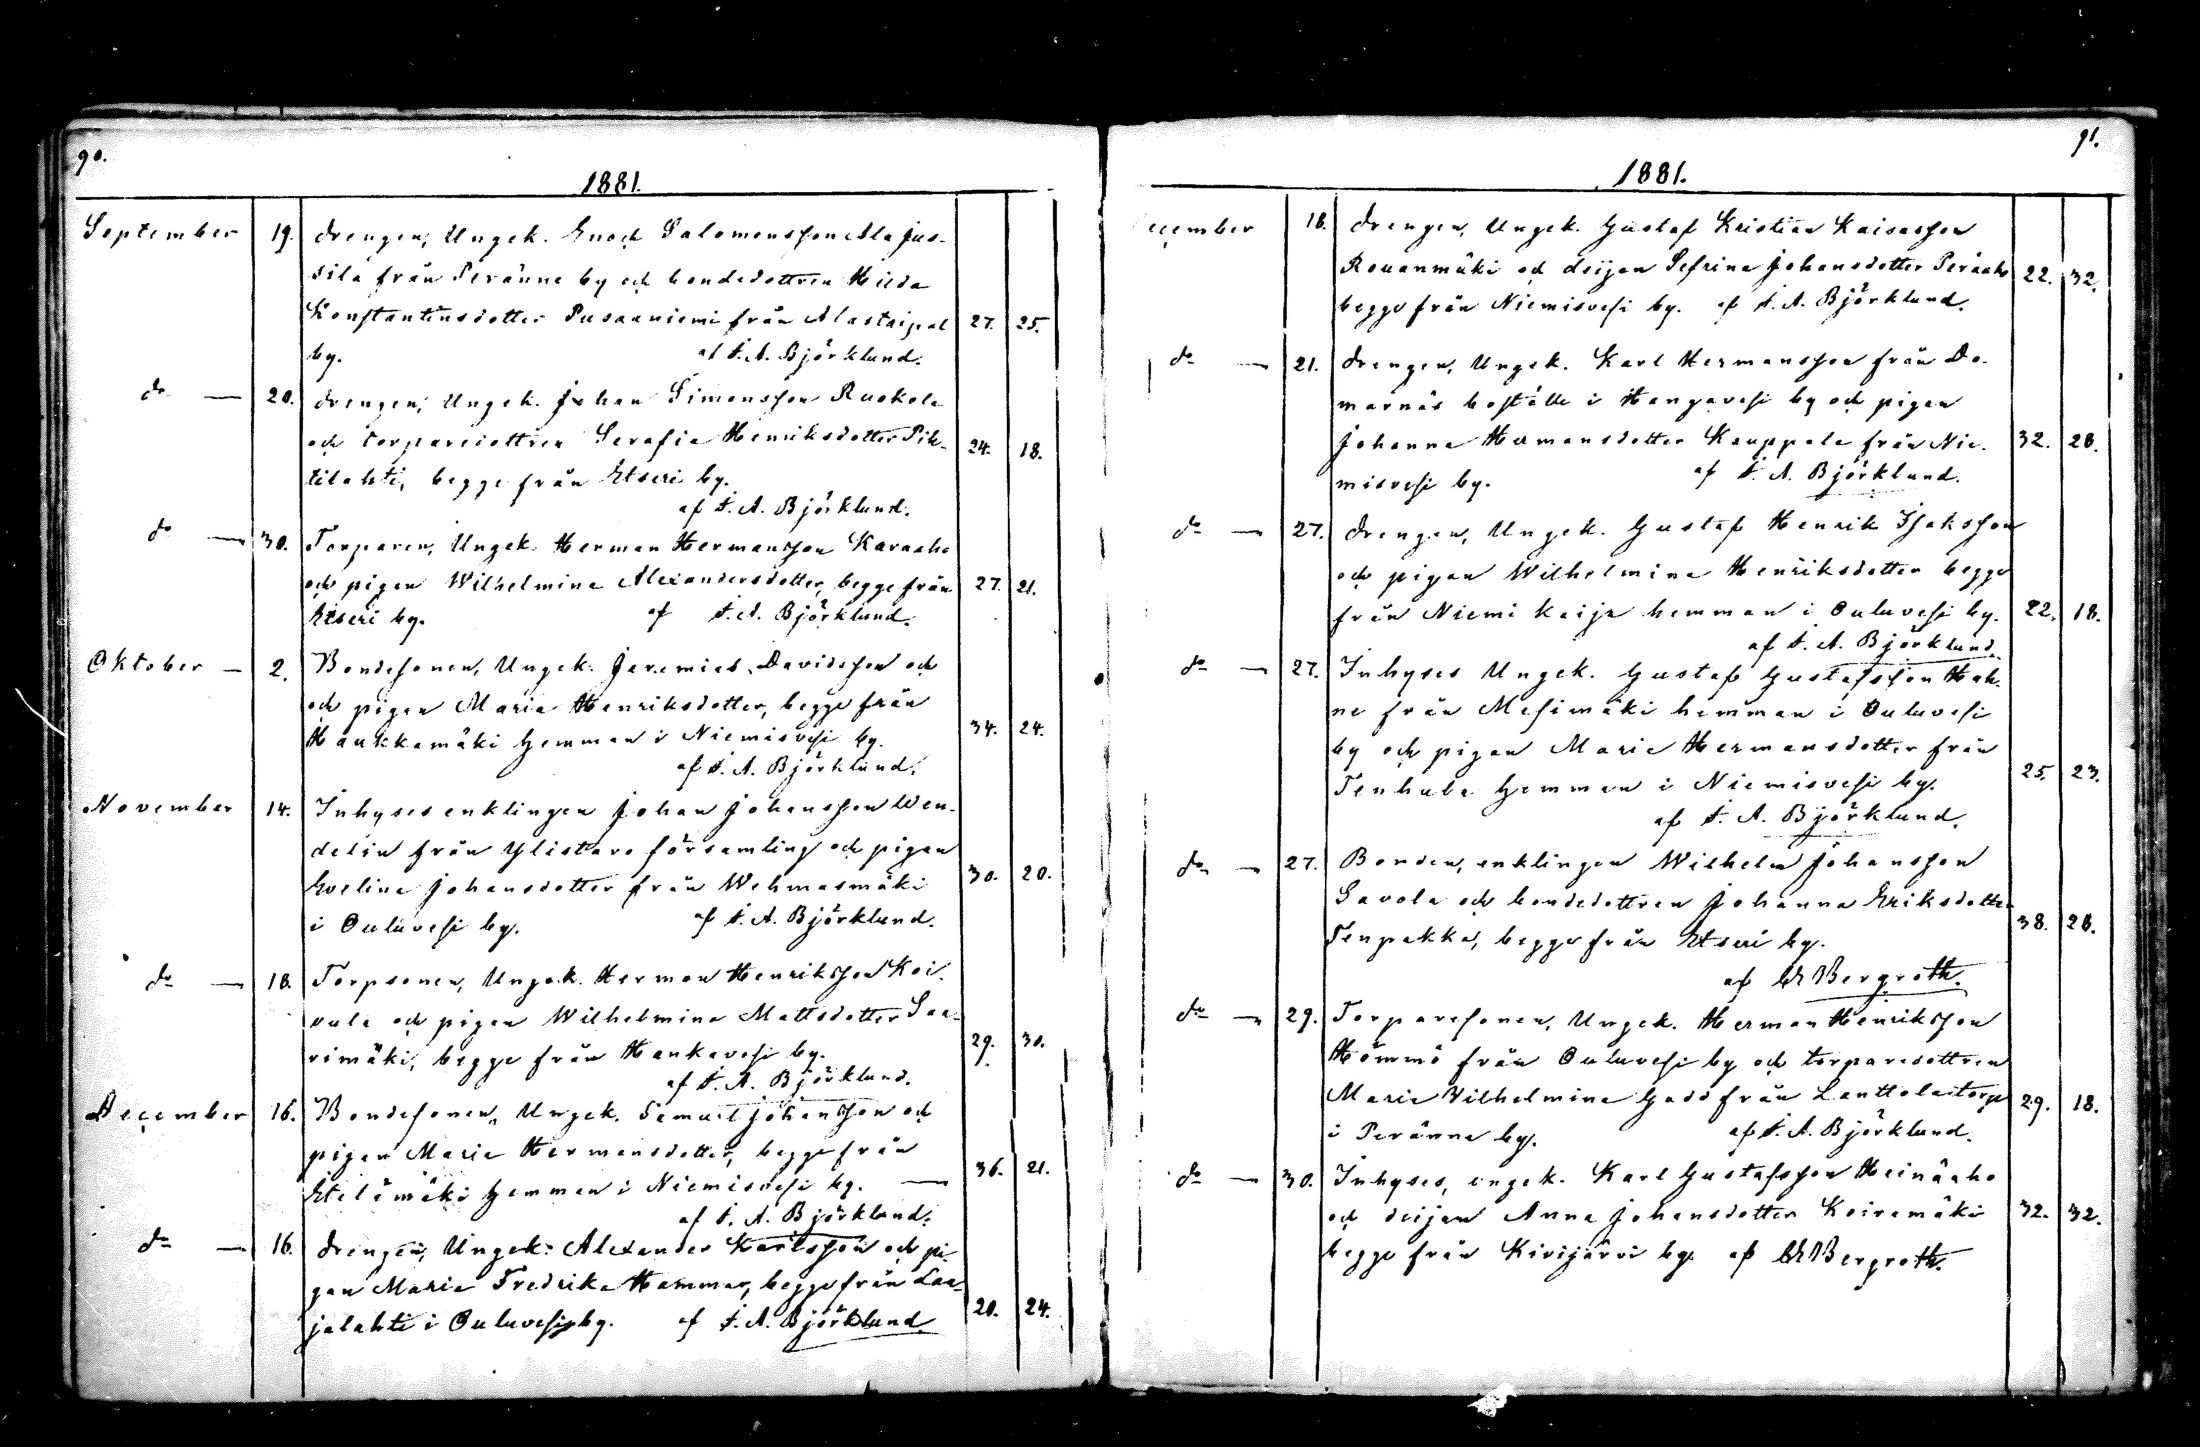 90.
1881.
September 19. drengen, Ungek. Enoch Salomonsson Ala Jus-
sila från Peränne by och bondedottren Hilda
Konstantinsdotter Pusaaniemi från Alastaipal 27. 25.
by. af F. A. Björklund.
do — 20. drengen, Ungek. Johan Simonsson Ruokola
och torparedottren Serafia Henriksdotter Pih-
tilahti, begge från Etseri by. 24. 18.
af F. A. Björklund.
do — 30. Torparen, Ungek. Herman Hermansson Karaaho
och pigan Wilhelmina Alexandersdotter, begge från 27. 21.
Etseri by. af F. A. Björklund.
Oktober — 2. Bondesonen, Ungek. Jeremias Davidsson och
och pigan Maria Henriksdotter, begge från
Haukkamäki hemman i Niemisvesi by. 34. 24.
af F. A. Björklund.
November 14. Inhyses enklingen Johan Johansson Wen-
delin från Ylistaro församling och pigan
Evelina Johansdotter från Wehmasmäki 30. 20.
i Ouluvesi by. af F. A. Björklund.
do — 18. Torpsonen, Ungek. Herman Henriksson Koi-
vula och pigan Wilhelmina Mattsdotter Saa-
rimäki, begge från Hankavesi by. 29. 30.
af F. A. Björklund.
December 16. Bondesonen, Ungek. Samuel Johansson och
pigan Maria Hermansdotter, begge från
Etelämäki hemman i Niemisvesi by. — 36. 21.
af F. A. Björklund.
do — 16. drengen, Ungek. Alexander Karlsson och pi-
gan Maria Fredrika Hammar, begge från Laa-
jalahti i Ouluvesi by. af F. A. Björklund. 20. 24.
91.
1881.
ecember 18. drengen, Ungek. Gustaf Kristian Kaisasson
Rouanmäki och deijan Sefrina Johansdotter Peräaho 22. 32.
begge från Niemisvesi by. af F. A. Björklund.
do — 21. drengen, Ungek. Karl Hermansson från Do-
marnäs boställe i Hangavesi by och pigan
Johanna Hermansdotter Kauppala från Nie- 32. 28.
misvesi by. af F. A. Björklund.
do — 27. drengen, Ungek. Gustaf Henrik Isaksson
och pigan Wilhelmina Henriksdotter begge
från Niemi Keija hemman i Ouluvesi by. 22. 18.
af F. A. Björklund.
do — 27. Inhyses Ungek. Gustaf Gustafsson Hah-
ne från Mesimäki hemman i Ouluvesi
by och pigan Maria Hermansdotter från
Tenhula hemman i Niemisvesi by. 25. 23.
af F. A. Björklund.
do — 27. Bonden, enklingen Wilhelm Johansson
Savola och bondedottren Johanna Eriksdotter
Tenpakka, begge från Etseri by. 38. 28.
af Bergroth.
do — 29. Torparesonen, Ungek. Herman Henriksson
Hömmö från Ouluvesi by och torparedottren
Maria Wilhelmina Gadd från Lanttola torp 29. 18.
i Peränne by. af F. A. Björklund.
do — 30. Inhyses, ungek. Karl Gustafsson Heinäaho
och deijan Anna Johansdotter Koiramäki 32. 32.
begge från Kivijärvi by. af Bergroth.